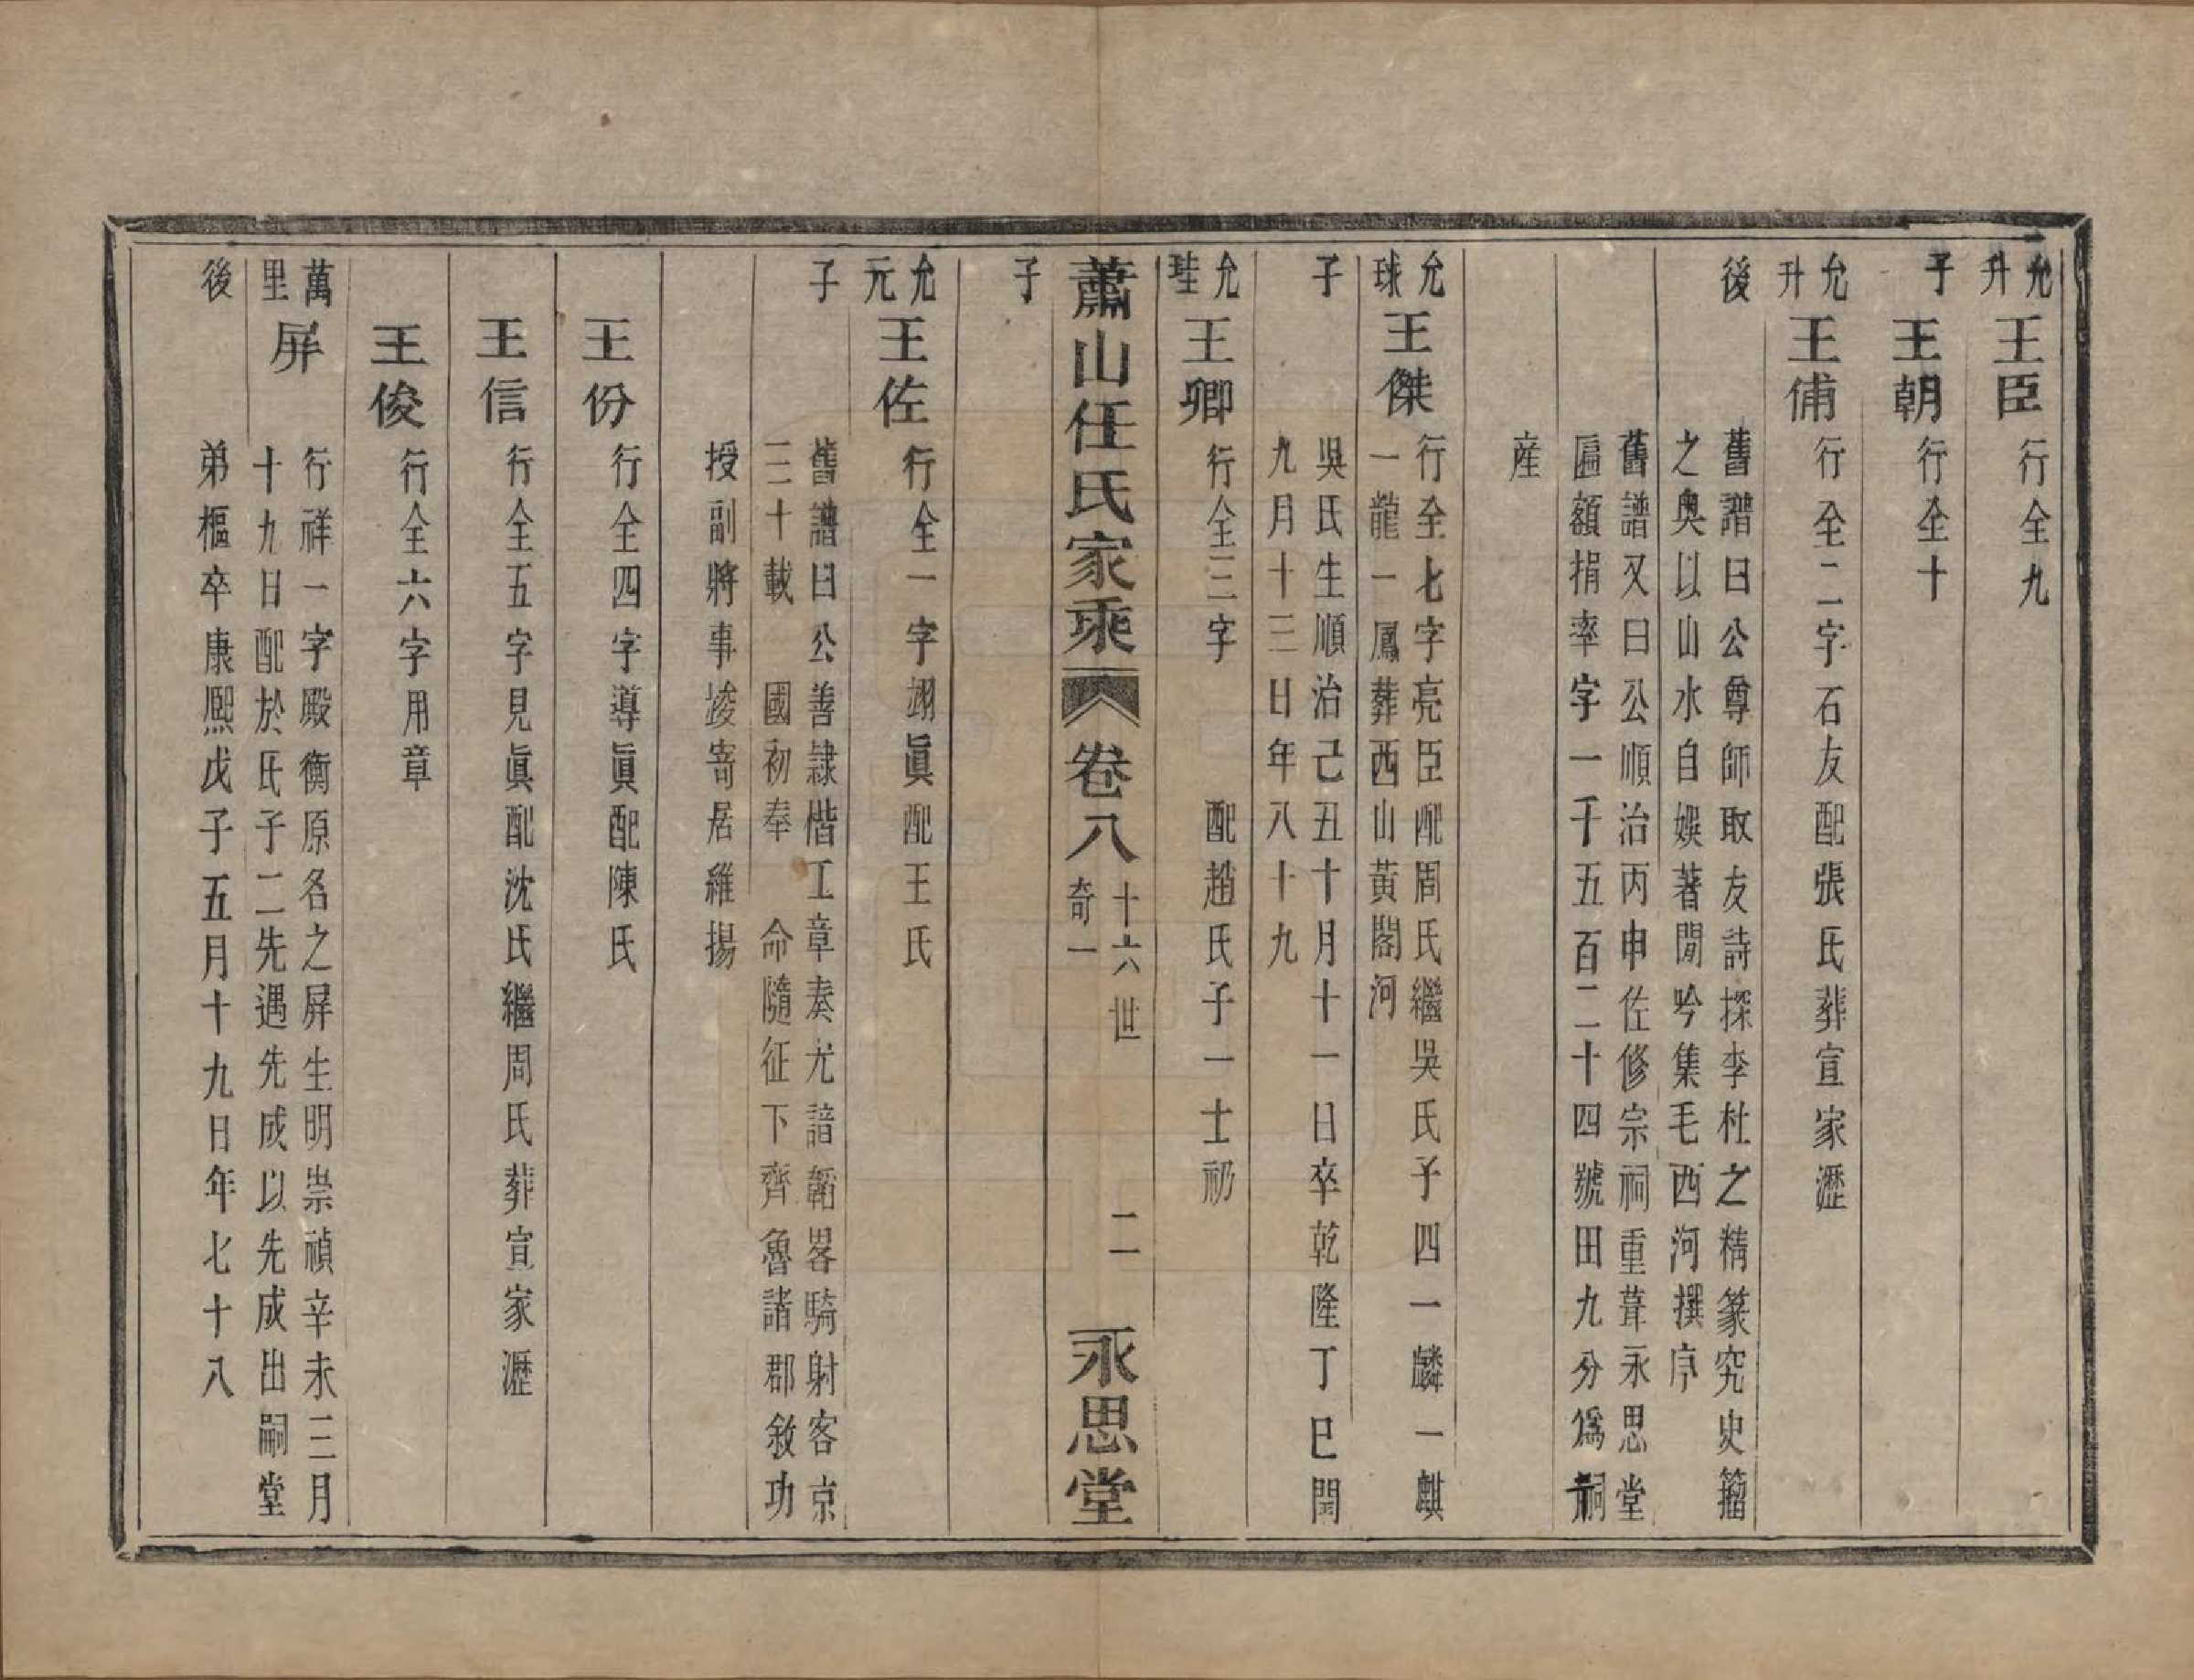 允升
王臣
行全九
子
王朝
行全十
允升
王俌
行全二字石友配張氏葬宣家瀝
後
舊譜曰公尊師取友詩探李杜之精篆究史籀
之奧以山水自娛著閒吟集毛西河撰序
舊譜又曰公順治丙申佐修宗祠重葺永思堂
匾額捐率字一千五百二十四號田九分爲祠
産
允球
王傑
行全七字亮臣配周氏繼吳氏子四一麟一麒
一龍一鳳葬西山黃閣河
子
吳氏生順治己丑十月十一日卒乾隆丁巳閏
九月十三日年八十九
允珪
王卿
行全三字 配趙氏子一士礽
子
蕭山任氏家乘 卷八 十六世 奇一 二 永思堂
允元
王佐
行全一字翊眞配王氏
子
舊譜曰公善隸楷工章奏尤諳韜畧騎射客京
三十載 國初奉 命隨征下齊魯諸郡敘功
授副將事竣寄居維揚
王份
行全四字導眞配陳氏
王信
行全五字見眞配沈氏繼周氏葬宣家瀝
王俊
行全六字用章
萬里
屏
行祥一字殿衡原名之屏生明崇禎辛未三月
十九日配於氏子二先遇先成以先成出嗣堂
後
弟樞卒康熙戊子五月十九日年七十八